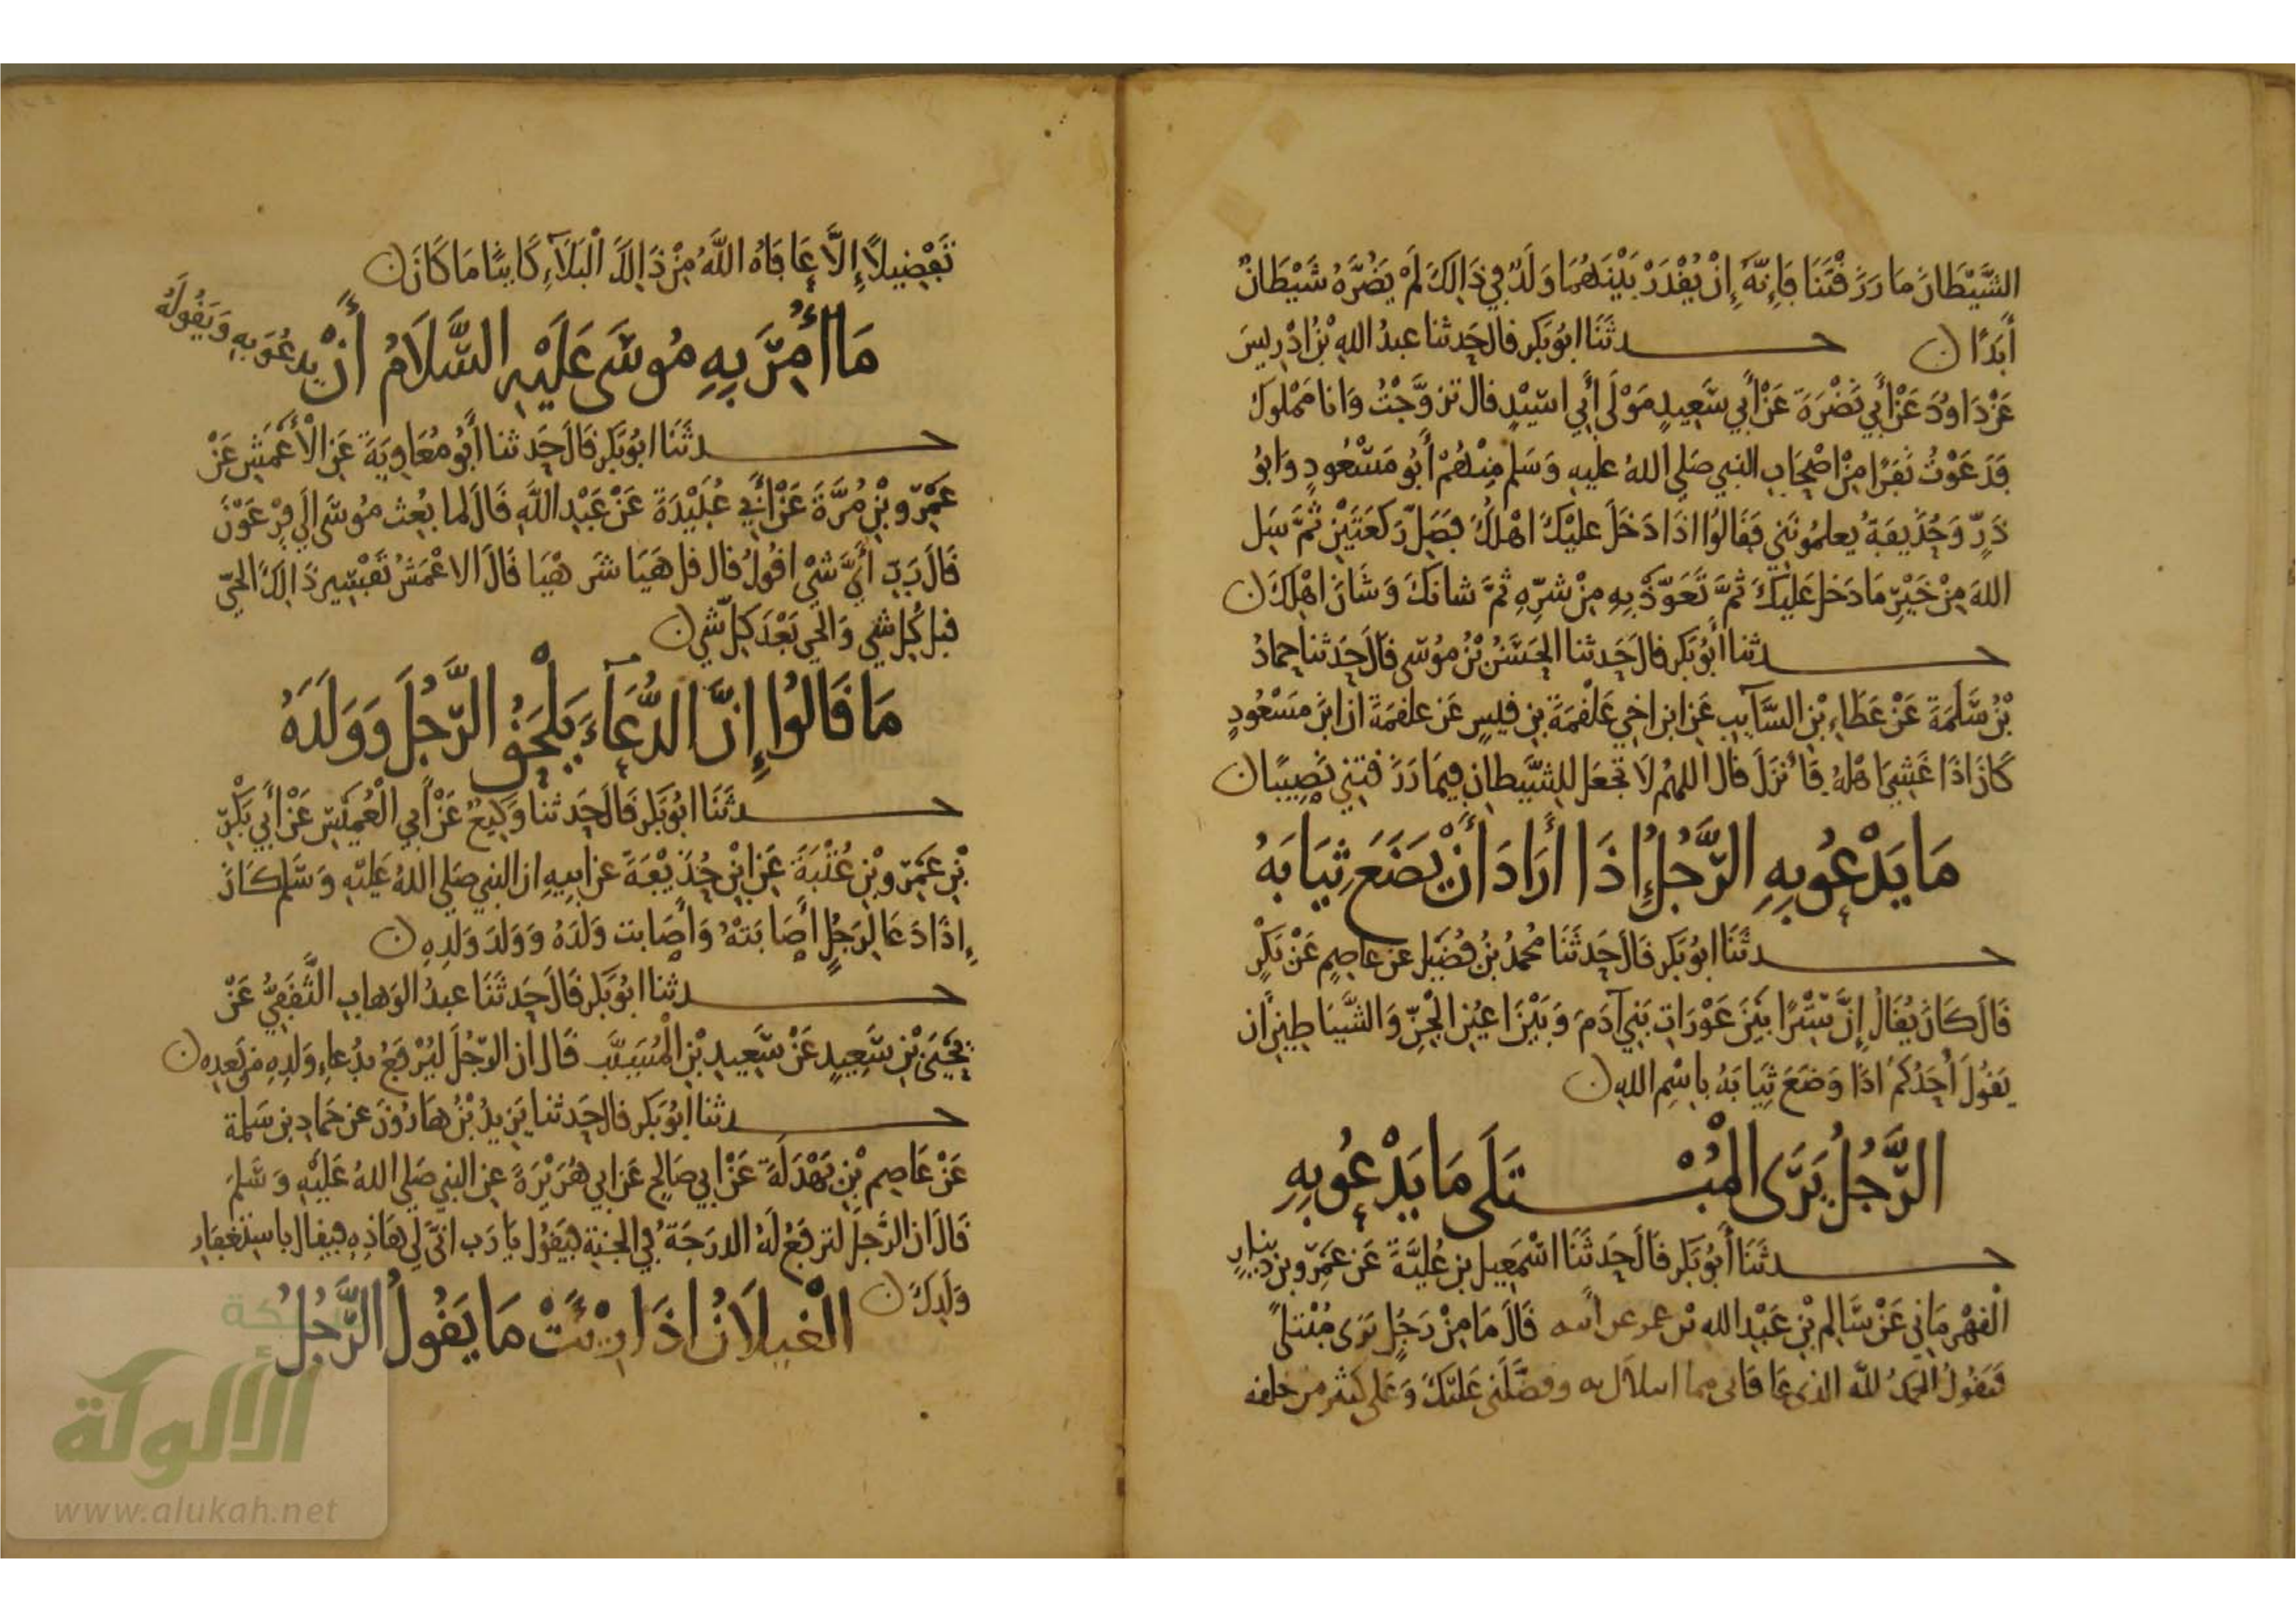 الشَّيْطَانَ مَا رَزَقْتَنَا فَإِنَّهُ إِنْ يُقْدَرْ بَيْنَهُمَا وَلَدٌ فِي ذَالِكَ لَمْ يَضُرَّهُ شَيْطَانٌ
أَبَدًا ن حدثَنَا ابُو بَكر قال حَدثنا عبدُ اللهِ بْنُ اِدْرِيسَ
عَنْ دَاوُدَ عَنْ أَبِي نَضْرَةَ عَنْ أَبِي سَعِيدٍ مَوْلَى أَبِي اسَيْدٍ قال تزوَّجْتُ وَانا مَمْلوك
فَدَعَوْتُ نَفَرًا مِنْ اصْحَابِ النبي صَلى اللهُ عليهِ وَسَلم مِنْهُمْ أَبُو مَسْعُودٍ وَابُو
ذَرٍّ وَحُذَيفَةُ يُعلمُونَنِي فَقَالُوا اذَا دَخَلَ عليْكَ اهْلُكَ فَصَلِّ رَكعَتَيْنِ ثُمَّ سَل
اللهَ مِنْ خَيْرِ مَا دَخَل عَلَيْكَ ثُمَّ تَعَوَّذْ بِهِ مِنْ شرِّهِ ثُمَّ شانكَ وَشَانَ اهْلِكَ ن
حدثنا أَبُو بَكر قالَ حَدثنا الحَسَنُ بْنُ مُوسَى قَالَ حَدثنا حمادُ
بْنُ سَلَمَةَ عَنْ عَطَاءِ بْنِ السَّآيِبِ عَنِ ابن اخي عَلْقَمَةَ بنِ قيسٍ عَن علقمَةَ ان ابنَ مَسْعُودٍ
كَانَ اذَا غَشِيَ اهْلهُ فَأَنْزَلَ قال اللهُمَّ لَا تجعَل للِشَّيطانِ فِيمَا رَزَقتنِي نَصِيبًا ن
مَا يَدْعُو بِهِ الرَّجُلُ إِذَا أَرَادَ أَنْ يَضَعَ ثِيَابَهُ
حدثَنَا ابُو بَكر قالَ حَدثَنَا مُحمدُ بْنُ فُضَيْل عَن عَاصِم عَنْ بَكْرٍ
قَالَ كَانَ يُقَالُ إِنَّ سِتْرًا بَيْنَ عَوْرَاتِ بَنِي آدَمَ وَبَيْنَ اعيُنِ الْجِنِّ وَالشَّيَاطِينِ أَن
يَقُولَ أَحَدُكُمْ اذَا وَضَعَ ثِيَابَهُ بِاسْمِ اللهِ ن
الرَّجُلُ يَرَى الْمُبْتَلَى مَا يَدْعُو بِهِ
حدثَنَا أَبُو بَكر قالَ حَدثَنَا اسْمَعِيل بن عُلَيَّةَ عَن عَمْرِو بن دِينارٍ
الْقَهْرَمَانِي عَنْ سَالِم بْنِ عَبْدِ الله بن عمر عن أبيه قَالَ مَا مِنْ رَجُلٍ يَرَى مُبْتَلًى
فَيَقُولُ الْحَمْدُ للَّهِ الذي عَافَانِي مما ابتلاك به وفضَّلَنِي عَليْكَ وَعَلى كثير من خلقه
تَفْضِيلًا إِلَّا عَافَاهُ اللَّهُ مِنْ ذَالِكَ الْبَلَآءِ كَايِنًا مَا كَانَ ن
مَا أُمِرَ بِهِ مُوسَى عَلَيْهِ السَّلَامُ أَنْ يدعُوَ بِهِ وَيَقُولَهُ
حدثَنَا ابُو بَكر قَالَ حَدثنا أَبُو مُعَاوِيَةَ عَنِ الْأَعْمَشِ عَنْ
عَمْرِو بْنِ مُرَّةَ عَنْ أَبِي عُبَيْدَةَ عَنْ عَبْدِ اللَّهِ قَالَ لما بُعِثَ مُوسَى الَى فِرْعَوْنَ
قَالَ رَبِّ أَيَّ شَيْ اقُولُ قال قل هَيَا شَرَ هْيَا قَالَ الاعْمَشُ تَفْسِير ذَالِكَ الحَيّ
قبل كُلِّ شي وَالحي بَعْدَ كلِّ شي ن
مَا قَالُوا إِنَّ الدُّعَآءَ يَلْحَقُ الرَّجُلَ وَوَلَدَهُ
حدثَنَا ابُو بَكر قالَ حَدثنا وَكِيعٌ عَنْ أَبِي الْعُمَيْسِ عَنْ أَبِي بَكْرِ
بْنِ عَمْرِو بْنِ عُتْبَةَ عَنِ ابْنِ حُذَيْفَةَ عن ابيهِ ان النبي صَلى اللهُ عَلَيْهِ وَسَلم كَانَ
إِذَا دَعَا لِرَجُلٍ أَصَابَتْهُ وَأَصَابت وَلَدَهُ وَوَلَدَ وَلَدِهِ ن
حدثنا ابُو بَكر قَالَ حَدثَنَا عبدُ الوَهابِ الثَّقَفِيُّ عَنْ
يَحْيَى بْنِ سَعِيدٍ عَنْ سَعِيدِ بْنِ الْمُسَيَّبِ قَالَ ان الرّجُلَ ليُرْفَعُ بدُعاءِ وَلَدِهِ من بَعدِهِ ن
حدثنا أَبُو بَكر قال حَدثنا يَزِيدُ بْنُ هَارُونَ عَن حَمادِ بن سَلمة
عَنْ عَاصِم بْنِ بَهْدَلَةَ عَنْ ابي صَالح عَن ابي هُرَيْرَةَ عنِ النبي صَلى اللهُ عَلَيْهِ وَسَلمَ
قَالَ ان الرَّجلَ لتُرفَعُ لَهُ الدرَجَةُ فِي الجنةِ فَيَقُولُ يَا رَب انَّى لِي هَاذِهِ فيقال باستِغفَارِ
وَلَدِكَ ن الْغيلَانُ اذَا رِئِيَتْ مَا يَقُولُ الرَّجُلُ
شبكة
الألوكة
www.alukah.net